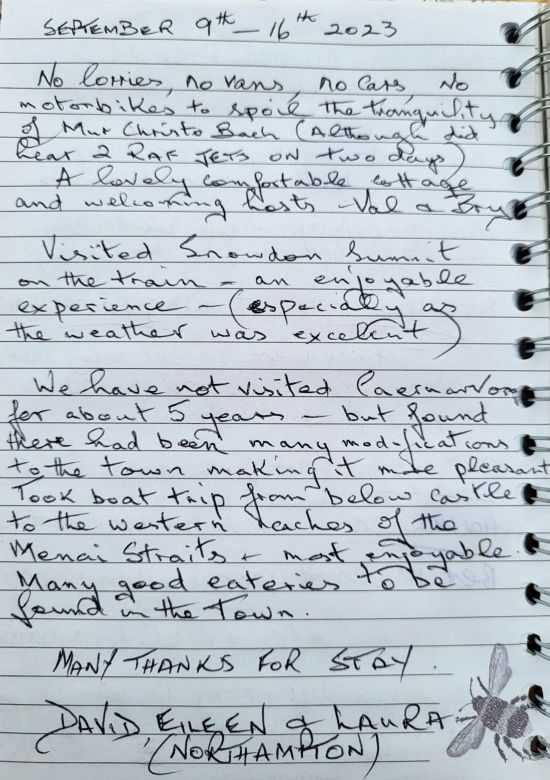 SEPTEMBER 9th – 16th 2023
No lorries, no vans, no cars, No
motorbikes to spoil the tranquility
of Mur Christo Bach (Although did
hear 2 RAF JETS ON two days)
A lovely comfortable cottage
and welcoming hosts – Val & Bry
Visited Snowdon Summit
on the train – an enjoyable
experience – (especially as
the weather was excelent)
We have not visited Caernarvon
for about 5 years – but found
there had been many modifications
to the town making it more pleasant
Took boat trip from below castle
to the western reaches of the
Menai Straits & most enjoyable.
Many good eateries to be
found in the Town.
MANY THANKS FOR STAY.
DAVID, EILEEN & LAURA
(NORTHAMPTON)